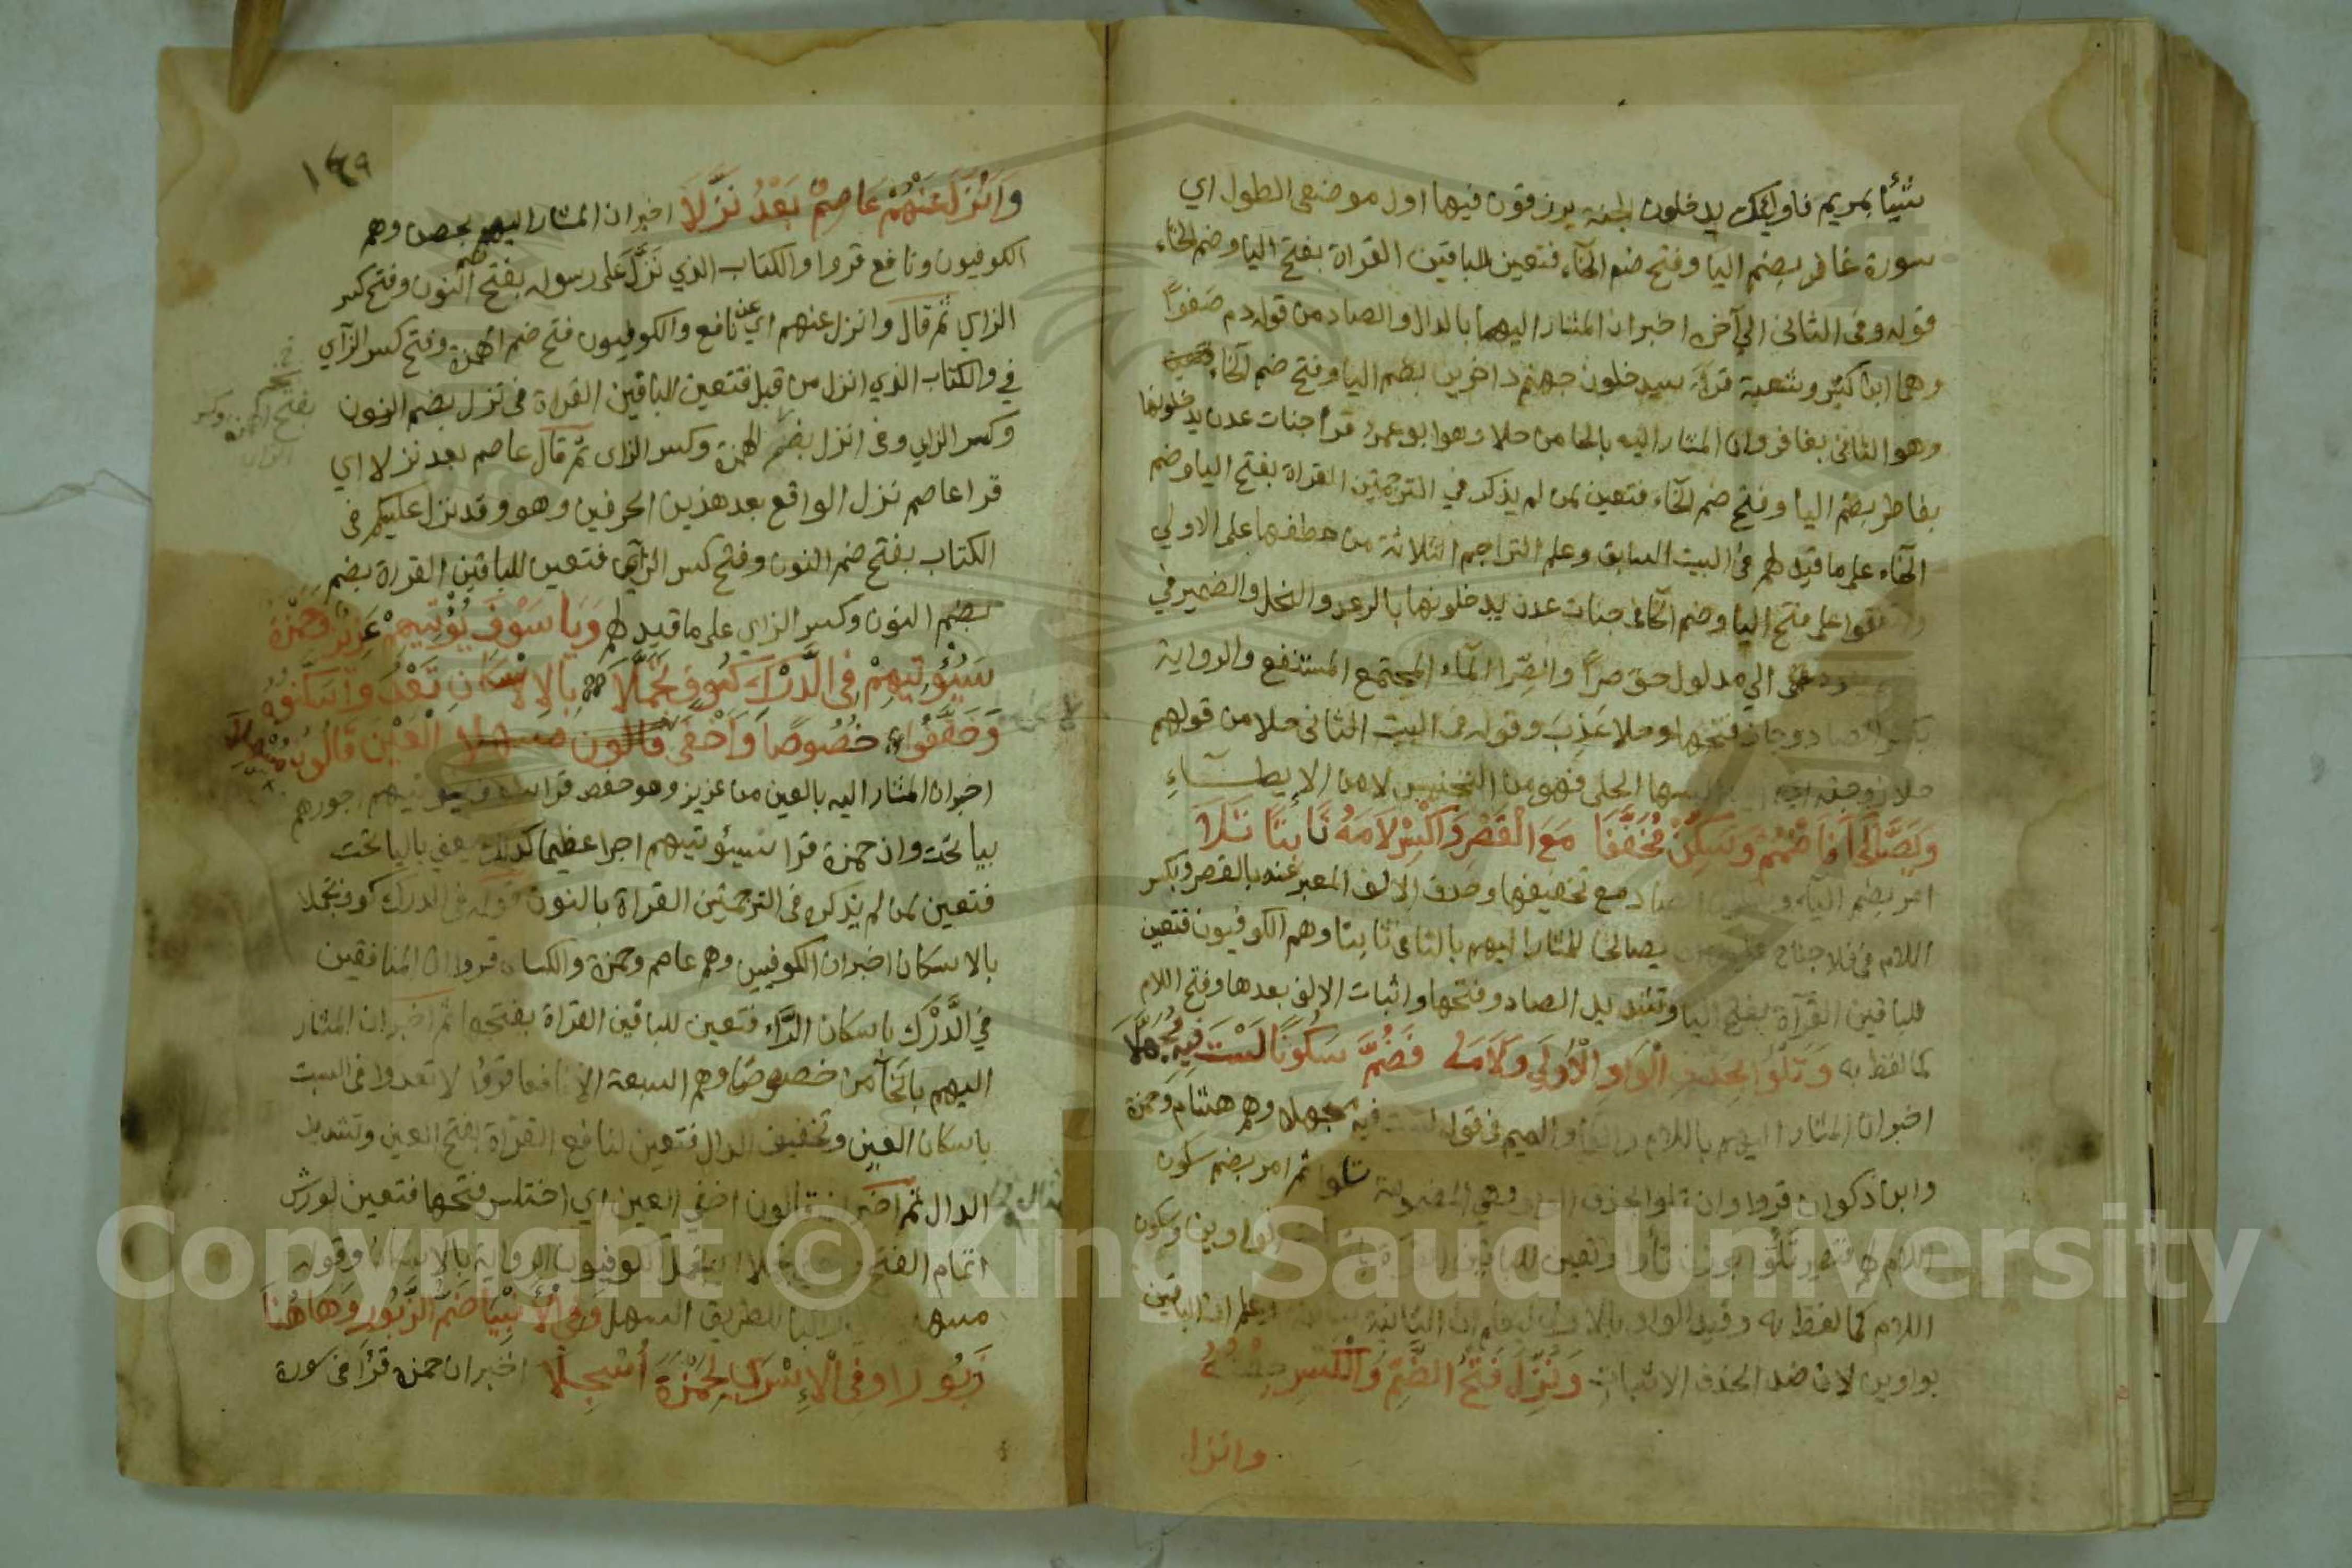 شيئا بمريم فاولئك يدخلون الجنة يرزقون فيها اول موضعى الطول اي
سورة غافر بضم اليا وفتح ضم الخاء فتعين للباقين القراة بفتح اليا وضم الخاء
قوله وفى الثانى الي آخره اخبر ان المشار اليهما بالدال والصاد من قوله دم صفوًا
وهما ابن كثير وشعبة قرآ سيدخلون جهنم داخرين بضم اليا وفتح ضم الخاء
وهو الثانى بغافر وان المشار اليه بالحا من حلا وهو ابو عمرو قرا جنات عدن يدخلونها
بفاطر بضم اليا وفتح ضم الخاء فتعين لمن لم يذكر في الترجمتين القراة بفتح اليا وضم
الخاء على ما قيد لهم فى البيت السابق وعلم التراجم الثلاثة من عطفها على الاولي
على فتح اليا وضم الخا فى جنات عدن يدخلونها بالرعد والنحل والضمير في
الي مدلول حق صرًا والصِّرا المآء المجتمع المستنقع والرواية
الصاد وجاز فتحها وحلا عَذِبَ وقوله فى البيت الثانى حلا من قولهم
حلا زوجته البسها الحلى فهو من التجنيس لا من الايطاءِ
وَيَصَّالَحَا فَاضْمُمْ وَسَكِّنْ مُخَفِّفًا مَعَ الْقَصْرِ وَاكْسِرْ لَامَهُ ثَابِتًا تَلَا
امر بضم الياء الصاد مع تخفيفها وحذف الالف المعبر عنه بالقصر وبكسر
اللام فى فلا جناح يصالحا للمشار اليهم بالثا فى ثابتا وهم الكوفيون فتعين
للباقين القرآة بفتح اليا وتشديد الصاد وفتحها واثبات الالف بعدها وفتح اللام
كما لفظ به وَتَلْوُا بِحَذْفِ الْوَاوِ الْاُولَى وَلَامَهُ فَضُمَّ سُكُونًا لَسْتَ فِيهِ مُجَهَّلَا
اخبر ان المشار اليهم باللام والفا والميم فى قوله لست فيه مجهلا وهم هشام وحمزة
وابن ذكوان قروا وان تلوا بحذف الواو وهي المضمومة تلوا ثم امر بضم سكون
اللام فتصير تَلُوا بوزن وتعين للباقين القراة الواوين وسكون
اللام كما لفظ به وقيد الواو بالاولى ليعلم ان الثانية فيعلم ان الباقين
بواوين لان ضد الحذف الاثبات وَنُزِّلَ فَتْحُ الضَّمِّ وَالْكَسْرِ حِصْنُهُ
وانزل
١٤٩
وَاَنْزَلَ عَنْهُمْ عَاصِمٌ بَعْدُ نَزَّلَا اخبر ان المشار اليهم بحصن وهم
الكوفيون ونافع قروا والكتاب الذي نَزَّلَ على رسوله بفتح ضم النون وفتح كسر
الزاي ثم قال وانزل عنهم اي عن نافع والكوفيون فتح ضم الهمزة وفتح كسر الزآي
في والكتاب الذي انزل من قبل فتعين للباقين القراة فى نزل بضم النون
وكسر الزاي وفى انزل بضم الهمزة وكسر الزاى ثم قال عاصم بعد نزلا اي
قرا عاصم نزل الواقع بعد هذين الحرفين وهو وقد نزل عليكم فى
الكتاب بفتح ضم النون وفتح كسر الزآي فتعين للباقين القراة بضم
بضم النون وكسر الزاي على ما قيد لهم وَيَا سَوْفَ يُؤْتِيهِمْ عَزِيزٌ وَحَمْزَةٌ
سَيُؤْتِيهِمْ فِى الدَّرْكِ كُوفٍ تَحَمَّلَا بِالْاِسْكَانِ تَعْدُوا سَكِّنُوهُ
وَخَفِّفُوا خُصُوصًا وَاَخْفَى الْعَيْنَ قَالُونُ مُسْهِلَا
اخبر ان المشار اليه بالعين من عزيز وهو حفص قرا سوف يوتيهم اجورهم
بيا تحت وان حمزة قرا سيؤتيهم اجرا عظيما كذلك يعني باليا تحت
فتعين لمن لم يذكره فى الترجمتين القراة بالنون قوله فى الدرك كوف تحملا
بالاسكان اخبر ان الكوفيين وهم عاصم وحمزة والكساى قروا ان المنافقين
فى الدَّرْك باسكان الرَّاء فتعين للباقين القراة بفتحها ثم اخبر ان المشار
اليهم بالخآ من خصوصا وهم السبعة الا نافعا قرؤا لا تعدوا فى السبت
باسكان العين وتخفيف الدال فتعين لنافع القراة بفتح العين وتشديد
الدال ثم اخبر ان قالون اخفى العين اي اختلس فتحها فتعين لورش
اتمام الفتح الكوفيون الرواية بالاسكان وقوله
مسهلا للطريق السهل وَفِى الْاَنْبِيَا ضَمُّ الزَّبُورِ وَهَاهُنَا
زَبُورًا وَفِى الْاِسْرَا لِحَمْزَةَ اُسْجِلَا اخبر ان حمزة قرأ فى سورة
Copyright © King Saud University